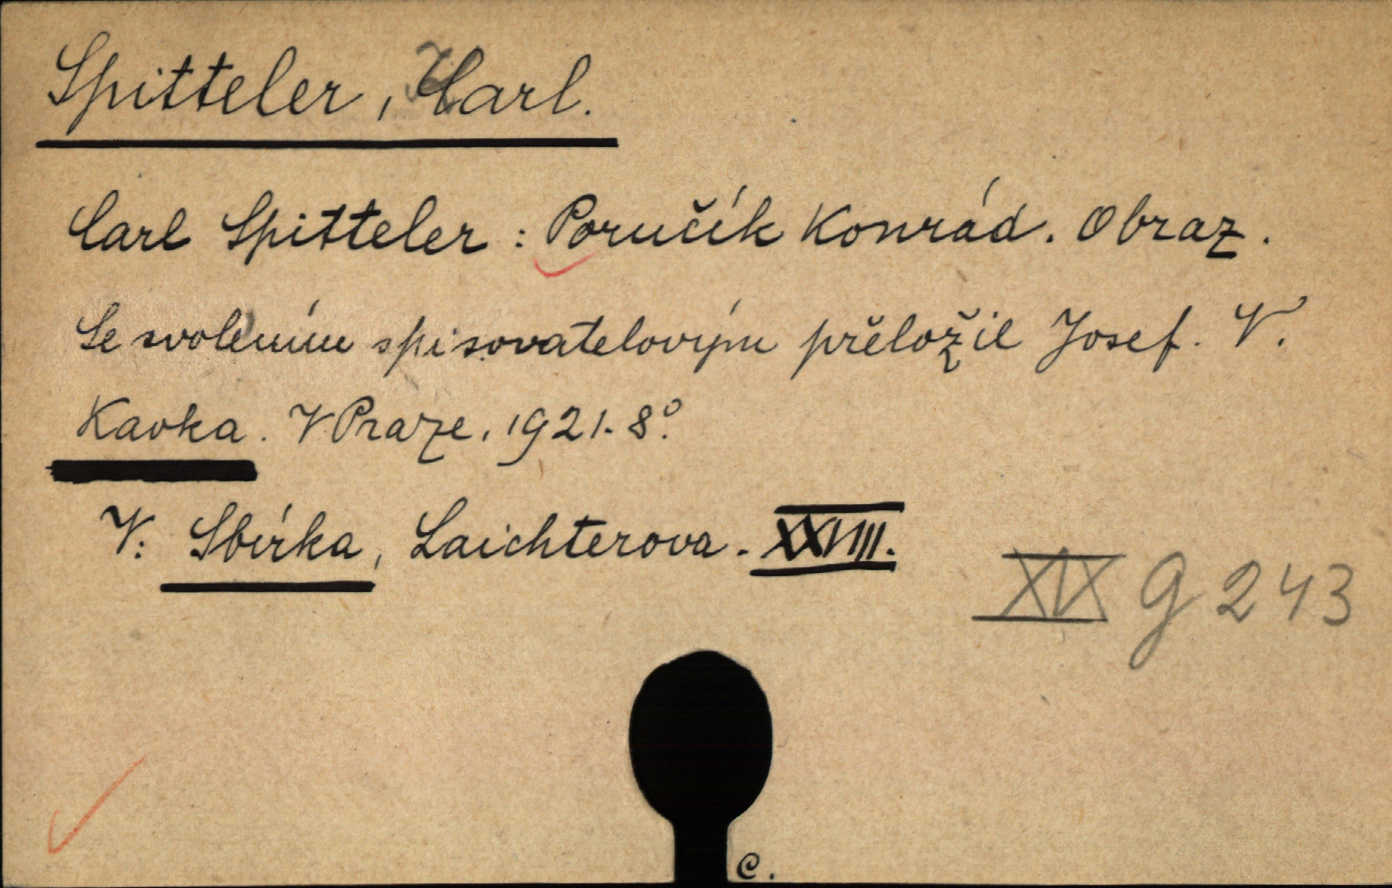 Spitteler, Carl.
Carl Spitteler: Poručík Konrád. Obraz.
Se svolením spisovatelovým přeložil Josef. V.
Kavka. V Praze, 1921. 8°.
V: Sbírka, Laichterova. XXVIII.
XIX G 243
C.